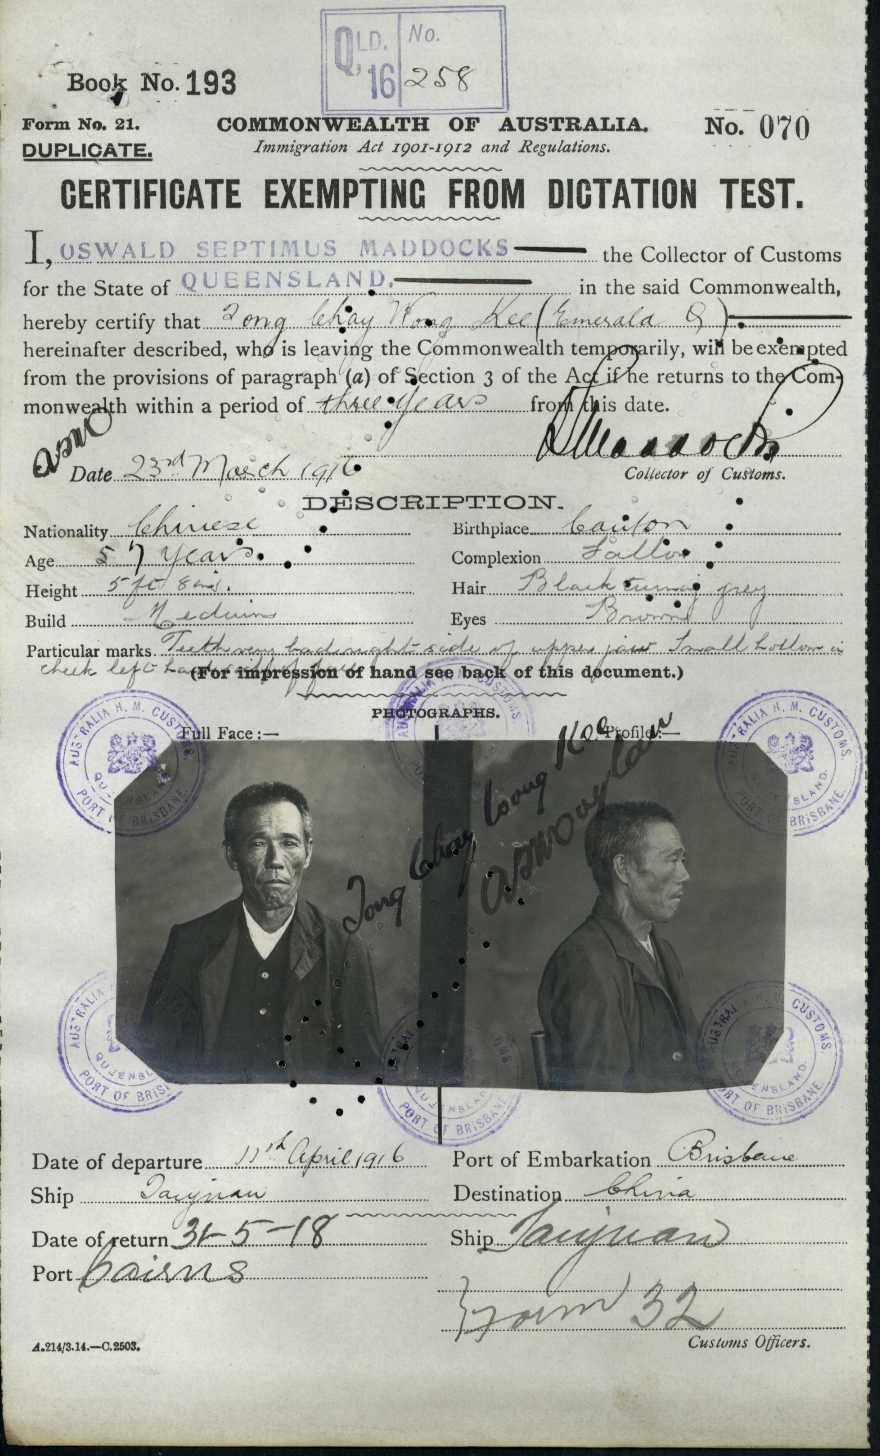 QLD. 16 No. 258
Book No. 193
Form No. 21. COMMONWEALTH OF AUSTRALIA. No. 070
DUPLICATE. Immigration Act 1901-1912 and Regulations.
CERTIFICATE EXEMPTING FROM DICTATION TEST.
I, OSWALD SEPTIMUS MADDOCKS the Collector of Customs
for the State of QUEENSLAND. in the said Commonwealth,
hereby certify that Tong Chay Wong Kee (Emerald Q)
hereinafter described, who is leaving the Commonwealth temporarily, will be exempted
from the provisions of paragraph (a) of Section 3 of the Act if he returns to the Com-
monwealth within a period of three years from this date.
Maddocks
Date 23rd March 1916 Collector of Customs.
DESCRIPTION.
Nationality Chinese Birthplace Canton
Age 57 years. Complexion Sallow
Height 5 ft 8 ins. Hair Black turning grey
Build Medium Eyes Brown
Particular marks Teeth very bad right side of upper jaw Small hollow in
cheek left hand side of
(For impression of hand see back of this document.)
PHOTOGRAPHS.
Full Face :— Profile :—
AUSTRALIA H. M. CUSTOMS QUEENSLAND. PORT OF BRISBANE
AUSTRALIA H. M. CUSTOMS
AUSTRALIA H. M. CUSTOMS QUEENSLAND. PORT OF BRISBANE
Tong Chay Wong Kee
AUSTRALIA QUEENSLAND PORT OF BRISBANE
QUEENSLAND PORT OF BRISBANE
AUSTRALIA CUSTOMS QUEENSLAND. PORT OF BRISBANE
Date of departure 11th April 1916 Port of Embarkation Brisbane
Ship Taiyuan Destination China
Date of return 31-5-18 Ship Taiyuan
Port Cairns
Form 32
A.214/3.14.—C.2503. Customs Officers.